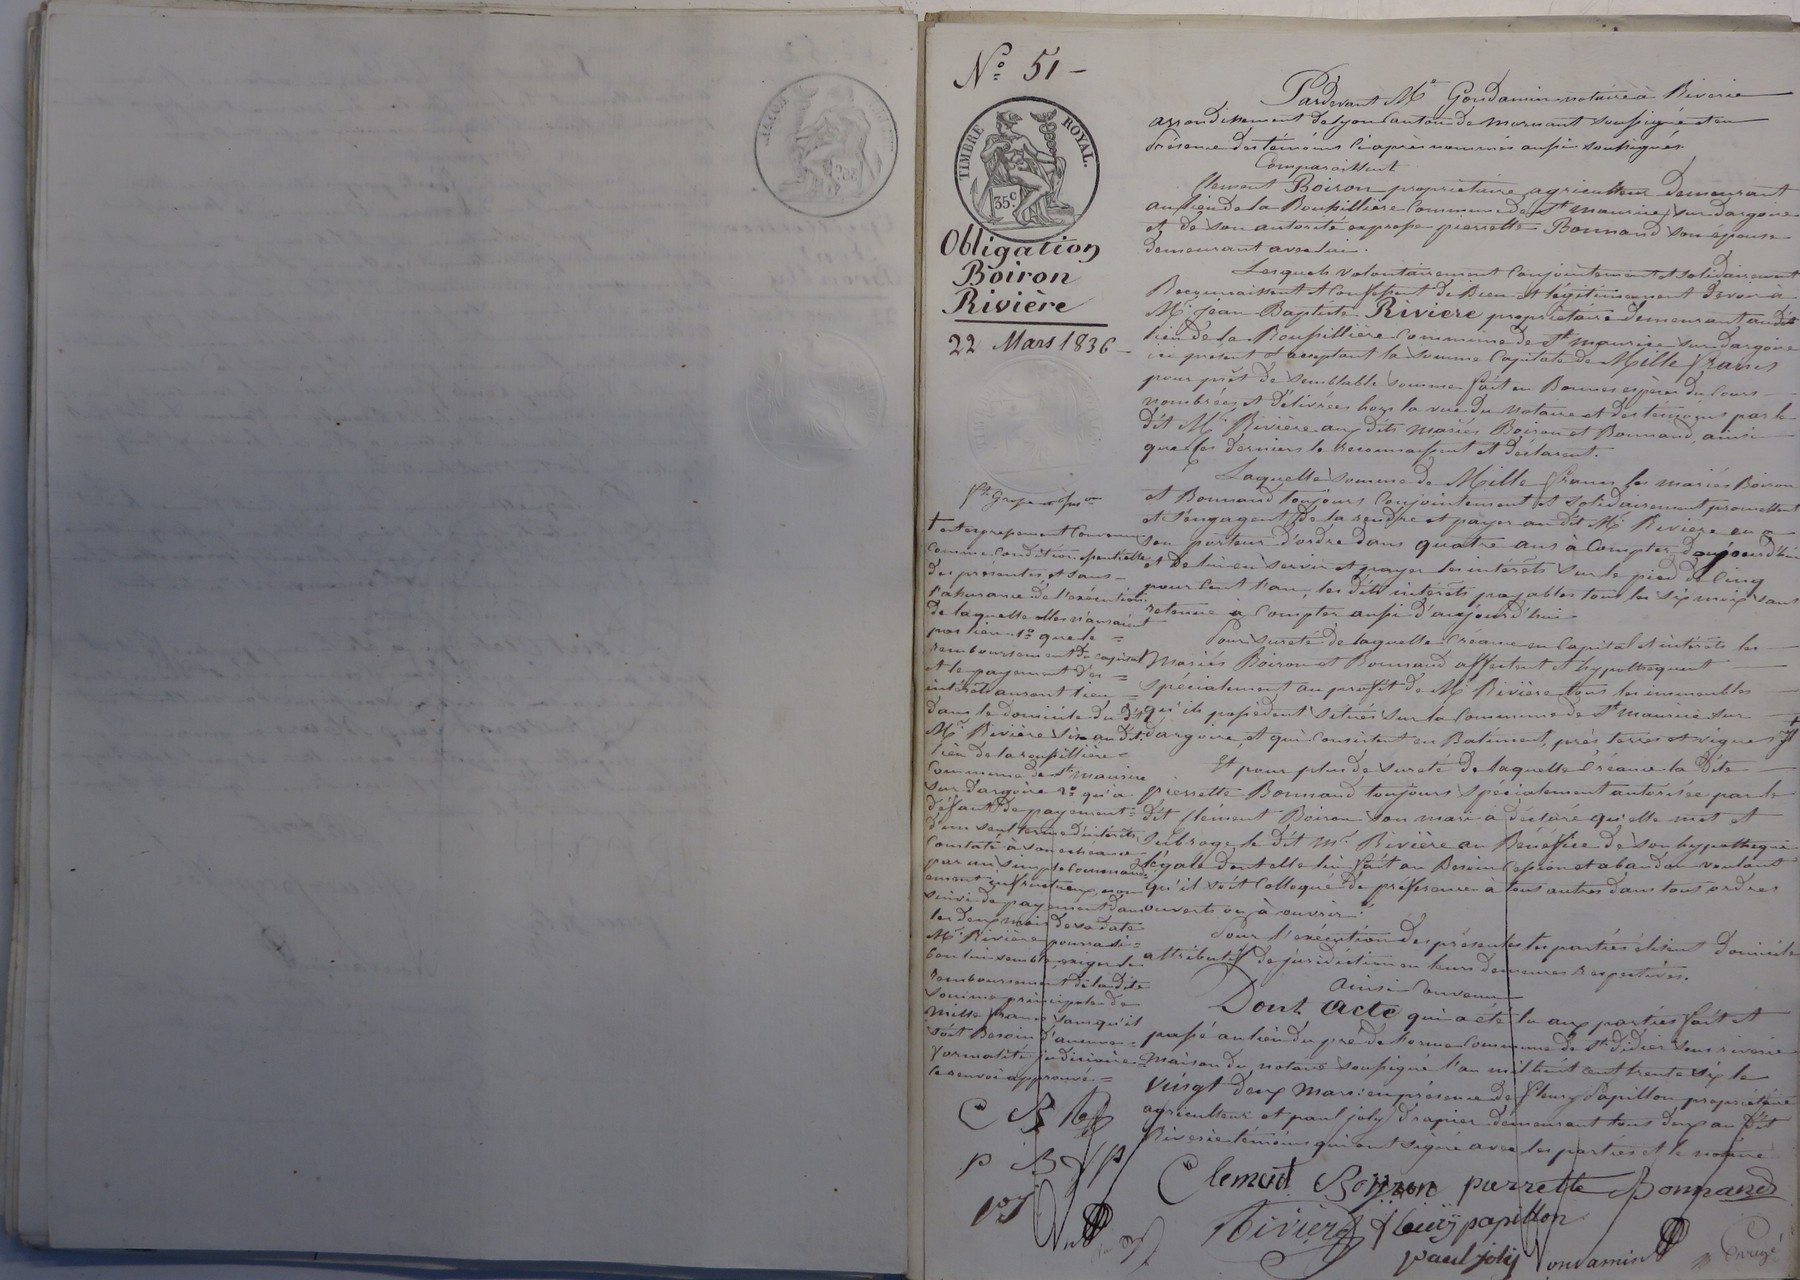 N° 51
TIMBRE ROYAL.
35 c.
Obligation
Boiron
Rivière
22 Mars 1836
Pardevant Me Gondamin notaire à Riverie
arrondissement de Lyon canton de mornant soussigné et en
présence des témoins ci après nommés aussi soussignés.
Comparaissent
Clement Boiron propriétaire agriculteur demeurant
au lieu de la Roussillière Commune de St maurice sur dargoire
et de son autorité expresse pierrette Bonnand son épouse
demeurant avec lui.
Lesquels volontairement Conjointement et solidairement
Reconnaissent et Confessent de Bien et légitimement devoir à
Mr jean Baptiste Rivière propriétaire demeurant audit
lieu de la Roussillière Commune de St maurice sur dargoire
ici présent et acceptant la somme Capitale de Mille francs
pour prêt de semblable somme fait en Bonnes espèces du Cours
nombrées et délivrées hors la vue du notaire et des témoins par le
dit Mr Rivière aux dits mariés Boiron et Bonnand, ainsi
que ces derniers le reconnaissent et déclarent.
Laquelle somme de Mille francs les mariés Boiron
et Bonnand toujours Conjointement et solidairement promettent
et s'engagent de la rendre et payer au dit Mr Rivière ou à
son porteur d'ordre dans quatre ans à Compter d'aujourd'hui
et de lui en servir et payer les intérêts sur le pied de Cinq
pour Cent l'an, les dits intérêts payables tous les six mois sans
retenue à Compter aussi d'aujourd'hui
Pour sureté de laquelle Créance en Capital et intérêts les
Mariés Boiron et Bonnand affectent et hypothèquent
spécialement au profit de Mr Rivière tous les immeubles
qu'ils possèdent situés sur la Commune de St maurice sur
dargoire, et qui Consistent en Batiment, prés terres et vignes
Et pour plus de sureté de laquelle Créance la dite
pierrette Bonnand toujours spécialement autorisée par le
dit Clément Boiron son mari à déclaré qu'elle met et
subroge le dit Mr Rivière au Bénéfice de son hypothèque
légale dont elle lui fait au Besoin Cession et abandon voulant
qu'il soit Colloqué de préférence à tous autres dans tous ordres
ouverts ou à ouvrir.
Pour l'exécution des présentes les parties élisent domicile
attributif de juridiction en leurs demeures respectives.
Ainsi Convenu
Dont acte qui a été lu aux parties fait et
passé au lieu du pré de Commune de St didier sous riverie
Maison du notaire soussigné l'an mil huit cent trente six le
vingt deux Mars: en présence de fleury Papillon propriétaire
agriculteur et paul joly drapier demeurant tous deux au dit
Riverie témoins qui ont signé avec les parties et le notaire
† expressement Convenu
Comme Condition essentielle
des présentes et sans
l'assurance de l'exécution
de laquelle elles n'auraient
pas lieu. 1° que le
remboursement du capital
et le payement des
intérêts auront lieu
dans le domicile du dit
Mr Rivière sis au dit
lieu de la roussillière
Commune de St maurice
sur dargoire 2° qu'à
défaut de payement
d'un seul terme d'intérêts
Constaté à son échéance
par un simple Command-
ement infructueux, non
suivi de payement dans
les deux mois de sa date
Mr Rivière pourra si
bon lui semble exiger le
remboursement de la dite
somme principale de
Mille francs sans qu'il
soit Besoin d'aucune
formalité judiciaire
Ce renvoi approuvé
C B
P B f p
Clement Boiron pierrette Bonnand
Rivière fleury papillon
paul joly Gondamin